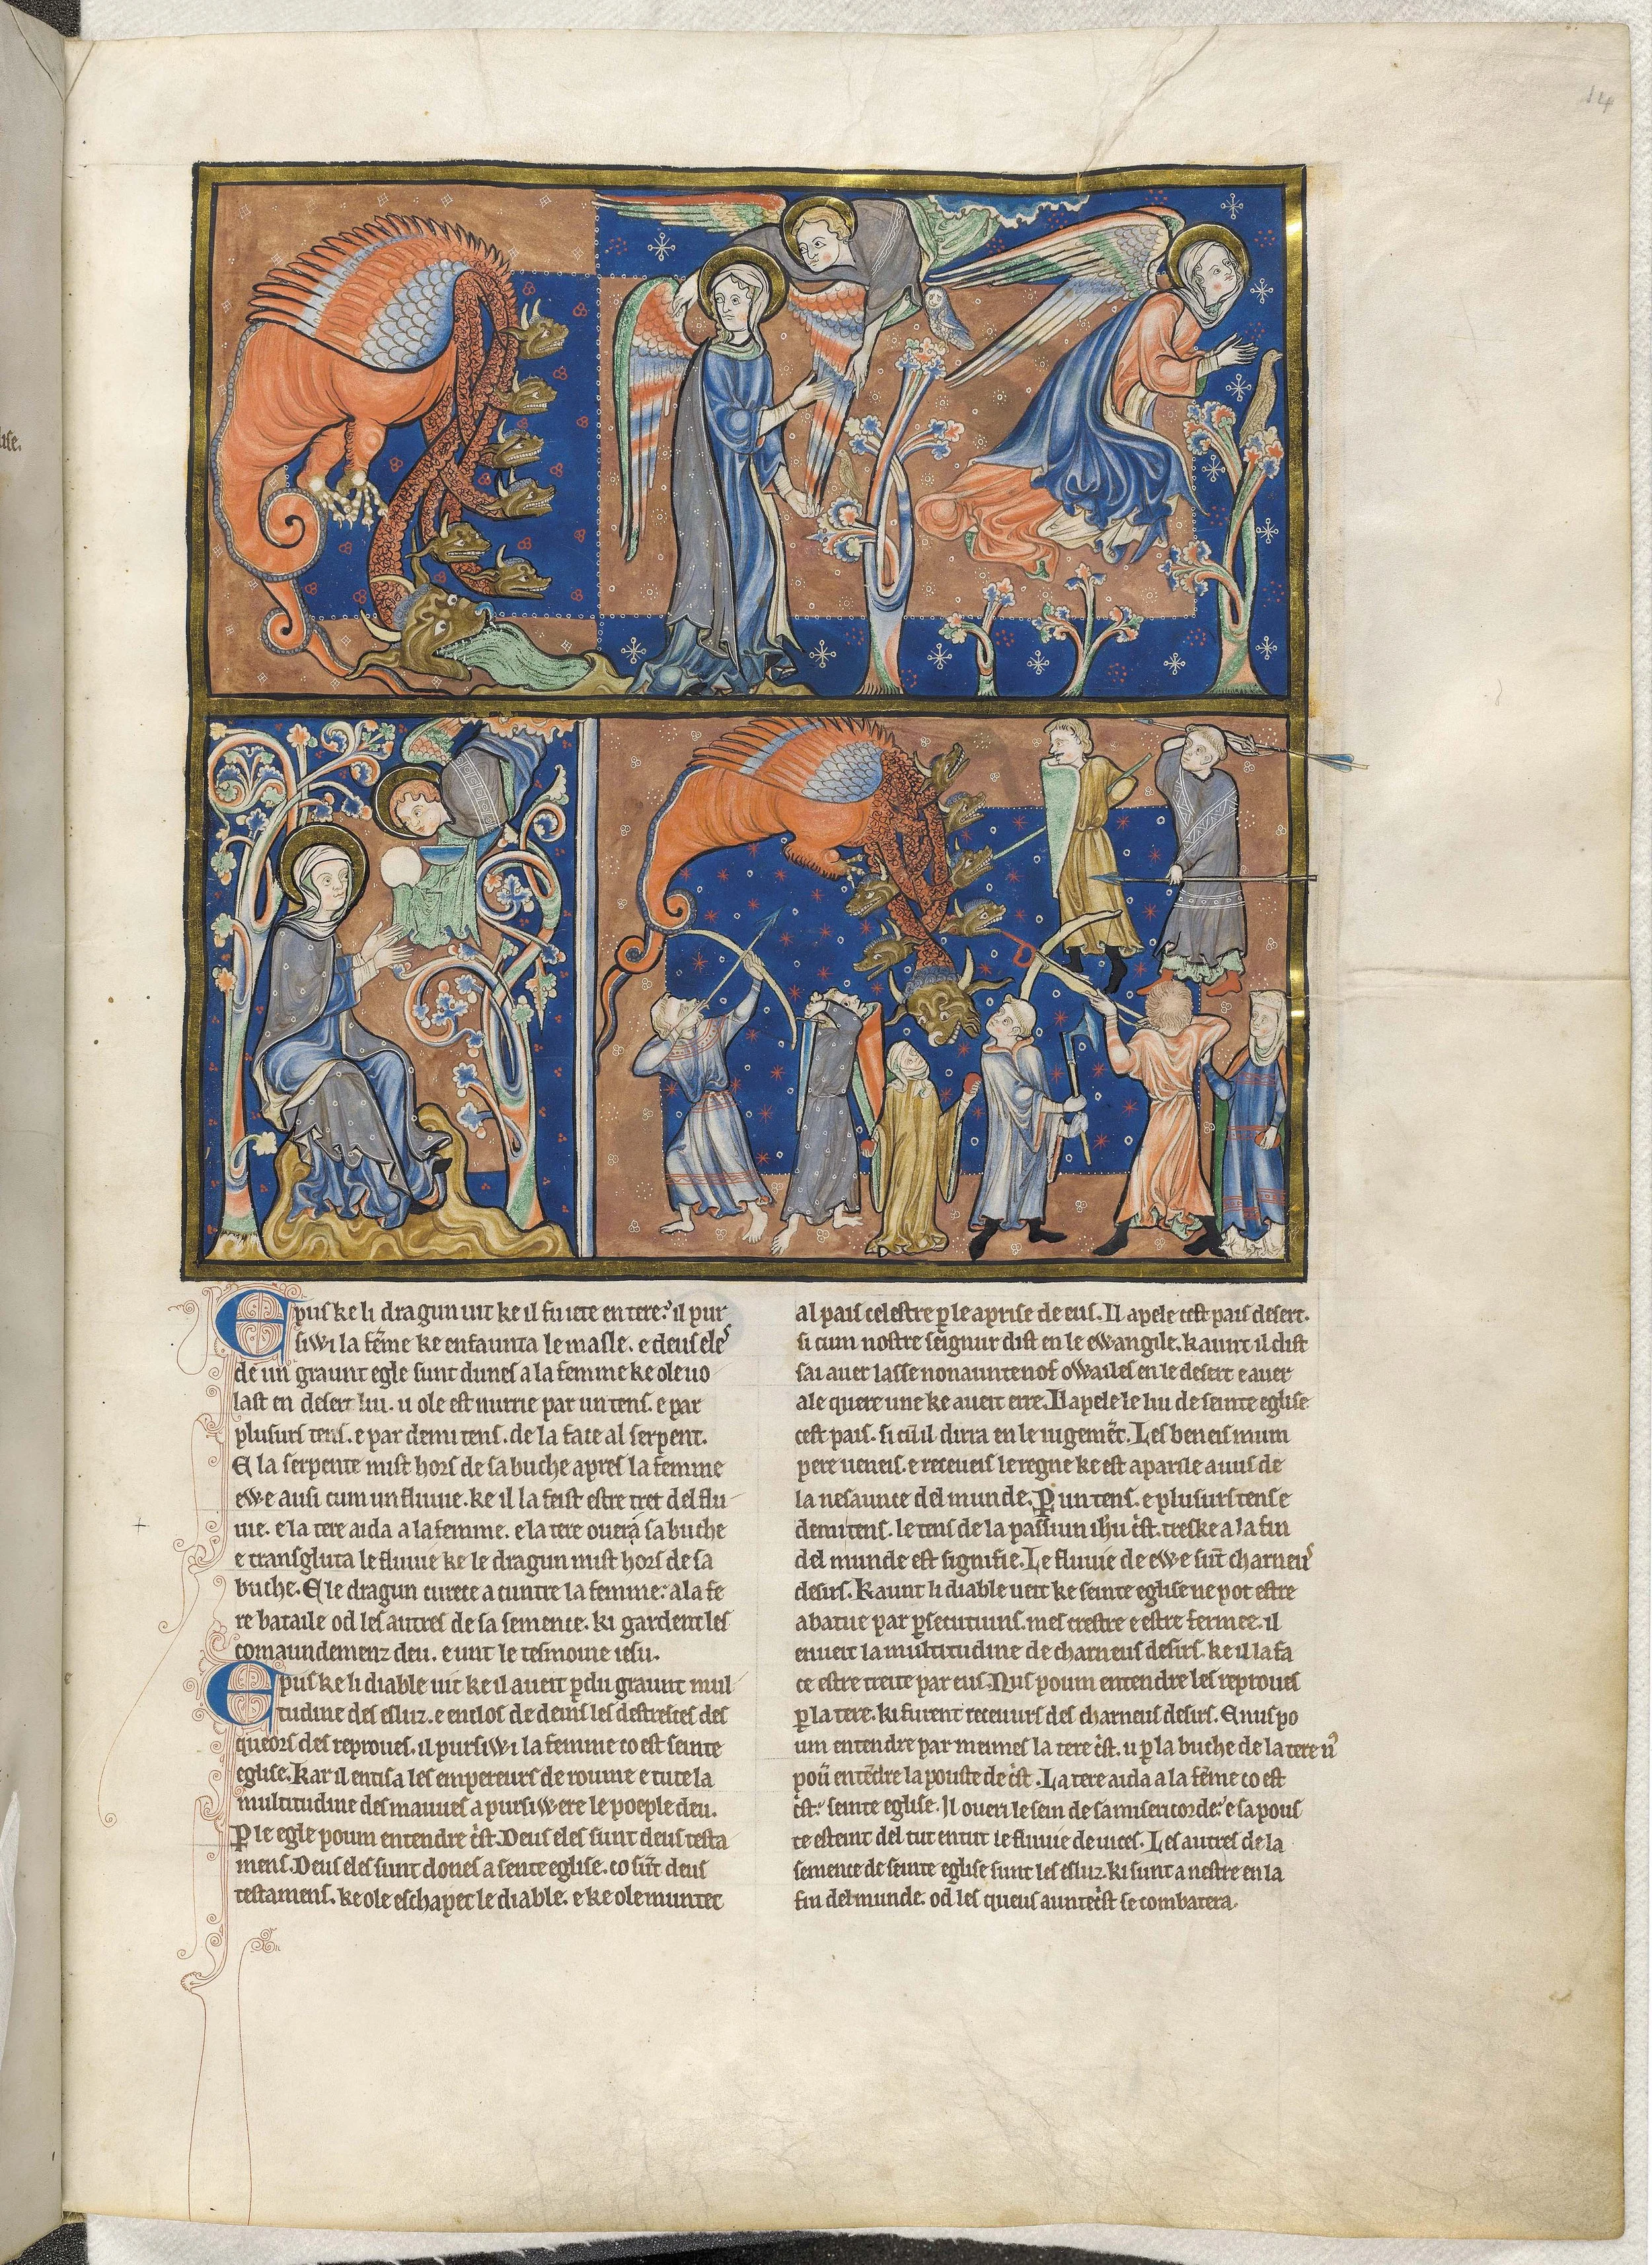 14
lise.
Epus ke li dragun uit ke il fu iete en tere: il pur
siwi la fẽme ke enfaunta le masle. e deus eles
de un graunt egle sunt dunes a la femme ke ole uo
last en desert liu. u ole est nurrie par un tens. e par
plusurs tens. e par demi tens. de la face al serpent.
E la serpente mist hors de sa buche apres la femme
ewe ausi cum un fluuie. ke il la feist estre tret del flu
uie. e la tere aida a la femme. e la tere ouera sa buche
e transgluta le fluuie ke le dragun mist hors de sa
buche. E le dragun curece a cuntre la femme: ala fe
re bataile od les autres de sa semence. ki gardent les
comaundemenz deu. e unt le tesmoine iesu.
Epus ke li diable uit ke il aueit ꝑdu graunt mul
titudine des esluz. e enclos de deins les destresces des
queors des reproues. il pursiwi la femme co est seinte
eglise. Kar il entisa les empereurs de roume e tute la
multitudine des mauues a pursiwere le poeple deu.
Ꝑ le egle poum entendre c̃st. Deus eles sunt deus testa
mens. Deus eles sunt dones a sente eglise. co sũt deus
testamens. ke ole eschapet le diable. e ke ole muntet
al pais celestre ꝑ le aprise de eus. Il apele cest pais desert.
si cum nostre seignur dist en le ewangile. kaunt il dist
sai auer lasse nonaunte nof owailes en le desert e auer
ale quere une ke aueit erre. Il apele le liu de seinte eglise
cest pais. si cũ il dirra en le iugemẽt. Les beneis mum
pere ueneis. e receueis le regne ke est aparile a uus de
la nesaunce del munde. Ꝑ un tens. e plusurs tens e
demi tens. le tens de la passiun ihũ c̃st. treske a la fin
del munde est signifie. Le fluuie de ewe sũt charneus
desirs. Kaunt li diable ueit ke seinte eglise ne pot estre
abatue par ꝑsecutiuns. mes crestre e estre fermee. il
enueit la multitudine de charneus desirs. ke il la fa
ce estre treite par eus. Nus poum entendre les reproues
ꝑ la tere. ki furent receuurs des charneus desirs. E nus po
um entendre par meimes la tere c̃st. u ꝑ la buche de la tere
poũ entẽdre la pouste de c̃st. La tere aida a la fẽme co est
c̃st: seinte eglise. Il oueri le sein de sa misericorde: e sa pous
te esteint del tut entur le fluuie de uices. Les autres de la
semence de seinte eglise sunt les esluz. ki sunt a nestre en la
fin del munde. od les queus auntec̃st se combatera.